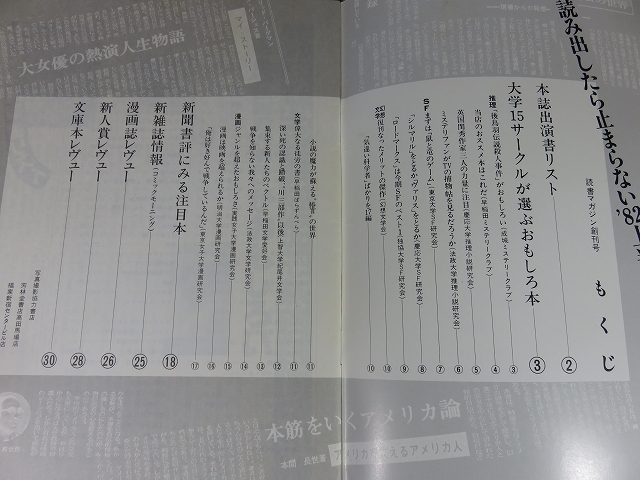 読み出したら止まらない'82
読書マガジン創刊号
もくじ
本誌出演書リスト ②
大学15サークルが選ぶおもしろ本 ③
推理 「後鳥羽伝説殺人事件」がおもしろい(成城ミステリークラブ) ③
当店のおススメ本はこれだ(早稲田ミステリークラブ) ④
英国閨秀作家二人の力量に注目(慶応大学推理小説研究会) ⑤
ミステリファンがTVの捕物帖を見るだろうか(法政大学推理小説研究会) ⑥
SF まずは「鼠と竜のゲーム」(東京大学SF研究会) ⑦
「シルマリル」をとるか「ヴァリス」をとるか(慶応大学SF研究会) ⑧
「ロードマークス」は今期SFのベスト1(独協大学SF研究会) ⑨
幻想文学 復刊なったメリットの傑作(幻想文学会) ⑩
「気違い科学者」ばかりを17編 ⑩
小説の魔力が蘇える、「椿言」の世界 ⑪
文学 偉大なる徒労の書 ⑪
深い死の認識と踏破、「川三部作」以後(上智大学紀尾井文学会) ⑫
集束する新人たちのベクトル(早稲田文学愛好会) ⑬
戦争を知らない我々へのメッセージ(法政大学文学研究会) ⑭
漫画 ジャンルを超えたおもしろさ(実践女子大学漫画研究会) ⑮
漫画は映画を超えられるか(明治大学漫画研究会) ⑯
「俺は好き好んで戦争しているんだ」(東京女子大学漫画研究会) ⑰
新聞書評にみる注目本 ⑱
新雑誌情報(コミックモーニング)
漫画誌レヴュー ㉕
新人賞レヴュー ㉖
文庫本レヴュー ㉘
㉚
写真撮影協力書店
芳林堂書店高田馬場店
福家書店新宿センタービル店
大女優の熱演人生物語
マイ ストーリー
本筋をいくアメリカ論
本間 長世著
アメリカ人